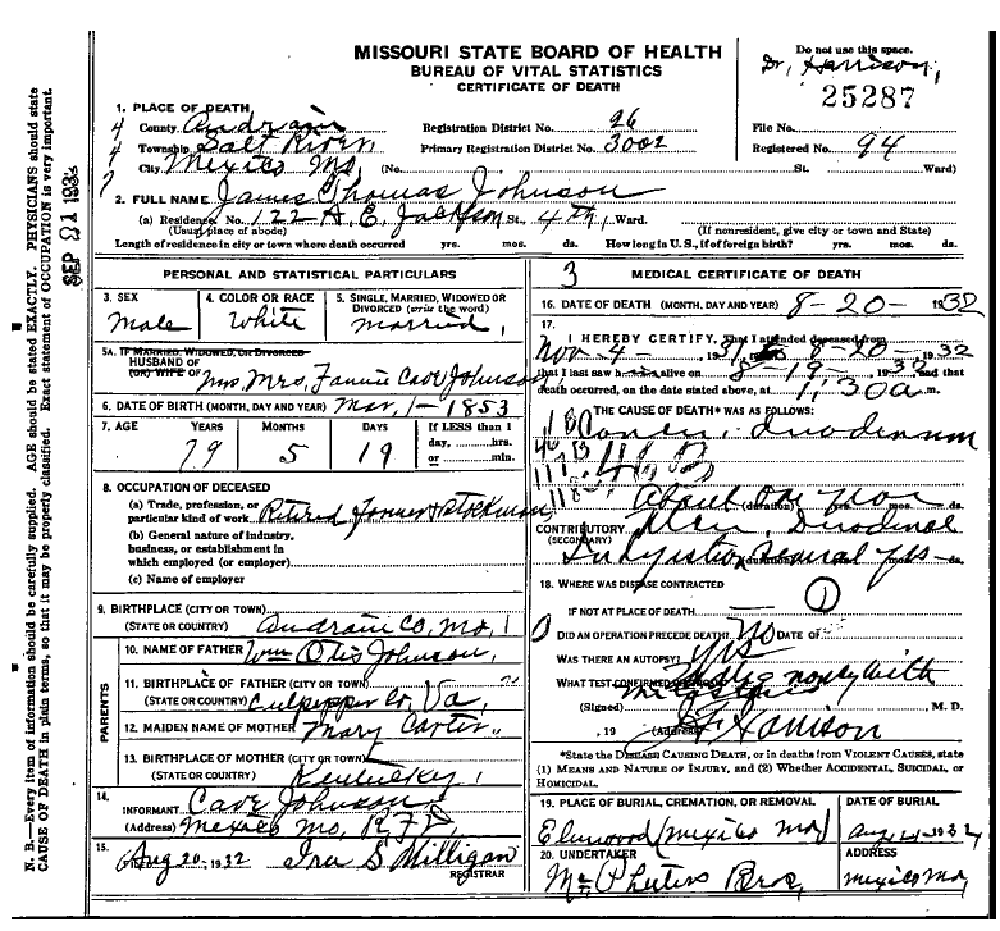 MISSOURI STATE BOARD OF HEALTH
BUREAU OF VITAL STATISTICS
CERTIFICATE OF DEATH
Do not use this space.
Dr. Harrison,
25287
1. PLACE OF DEATH
County Audrain Registration District No. 26 File No.
Township Salt River Primary Registration District No. 3002 Registered No. 94
City Mexico Mo, (No. St. Ward)
2. FULL NAME James Thomas Johnson
(a) Residence. No. 122 A. E. Jackson St., 4th, Ward.
(Usual place of abode) (If nonresident, give city or town and State)
Length of residence in city or town where death occurred yrs. mos. ds. How long in U. S., if of foreign birth? yrs. mos. ds.
PERSONAL AND STATISTICAL PARTICULARS
3. SEX 4. COLOR OR RACE 5. SINGLE, MARRIED, WIDOWED OR DIVORCED (write the word)
Male White Married,
5A. IF MARRIED, WIDOWED, OR DIVORCED
HUSBAND OF
(OR) WIFE OF Mrs. Fannie Cave Johnson
6. DATE OF BIRTH (MONTH, DAY AND YEAR) Mar, 1-1853
7. AGE YEARS MONTHS DAYS If LESS than 1 day, hrs. or min.
79 5 19
8. OCCUPATION OF DECEASED
(a) Trade, profession, or particular kind of work Retired Farmer & Stockman
(b) General nature of industry, business, or establishment in which employed (or employer)
(c) Name of employer
9. BIRTHPLACE (CITY OR TOWN)
(STATE OR COUNTRY) Audrain Co, Mo,
PARENTS
10. NAME OF FATHER Wm Otis Johnson,
11. BIRTHPLACE OF FATHER (CITY OR TOWN)
(STATE OR COUNTRY) Culpepper Co, Va,
12. MAIDEN NAME OF MOTHER Mary Carter
13. BIRTHPLACE OF MOTHER (CITY OR TOWN)
(STATE OR COUNTRY) Kentucky,
14. INFORMANT Cave Johnson
(Address) Mexico Mo, RFD,
15. Aug 20-1932 Ira S Milligan
REGISTRAR
3 MEDICAL CERTIFICATE OF DEATH
16. DATE OF DEATH (MONTH, DAY AND YEAR) 8-20-1932
17. I HEREBY CERTIFY, That I attended deceased from
Nov 4- 1931, to 8-20-1932
that I last saw h alive on 8-19-1932 and that
death occurred, on the date stated above, at 1:30 a. m.
THE CAUSE OF DEATH* WAS AS FOLLOWS:
Cancer, duodenum
About One (duration) yrs. mos. ds.
CONTRIBUTORY Ulcer, Duodenal
(SECONDARY)
Indigestion Several yrs
18. WHERE WAS DISEASE CONTRACTED
IF NOT AT PLACE OF DEATH 1
DID AN OPERATION PRECEDE DEATH? No DATE OF
WAS THERE AN AUTOPSY? yes
WHAT TEST CONFIRMED DIAGNOSIS? with
(Signed) M. D.
, 19 (Address) Harrison
*State the DISEASE CAUSING DEATH, or in deaths from VIOLENT CAUSES, state
(1) MEANS AND NATURE OF INJURY, and (2) Whether ACCIDENTAL, SUICIDAL, or
HOMICIDAL.
19. PLACE OF BURIAL, CREMATION, OR REMOVAL DATE OF BURIAL
Elmwood (Mexico Mo) Aug 1932
20. UNDERTAKER ADDRESS
McPheeters Bros, Mexico Mo,
N. B.—Every item of information should be carefully supplied. AGE should be stated EXACTLY. PHYSICIANS should state
CAUSE OF DEATH in plain terms, so that it may be properly classified. Exact statement of OCCUPATION is very important.
SEP 21 193